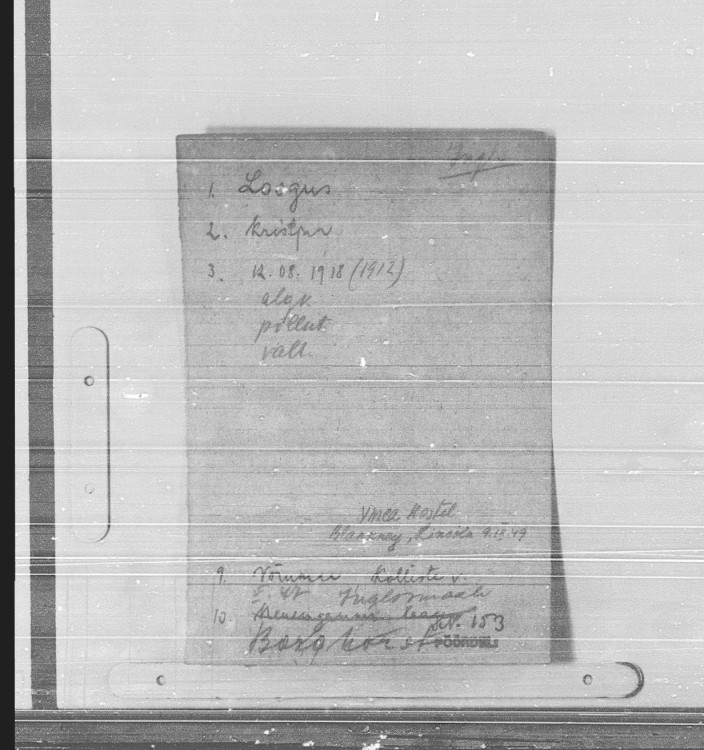 Ingl.
1. Loogus
2. Kristjan
3. 12.08.1918 (1912)
algk.
põllut.
vall.
Ymca Hostel
Blankney, Lincoln 9.III.49
9. Võrumaa Kolliste v.
s. 47 Inglismaale
10.
DV. 153
Borghorst PÖÖRDELI